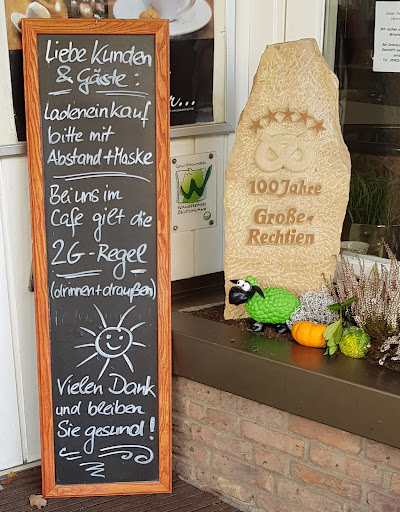 Liebe Kunden
& Gäste:
Ladeneinkauf
bitte mit
Abstand+Maske
Bei uns im
Cafe gilt die
2G-Regel
(drinnen+draußen)
Vielen Dank
und bleiben
Sie gesund!
100 Jahre
Große-
Rechtien